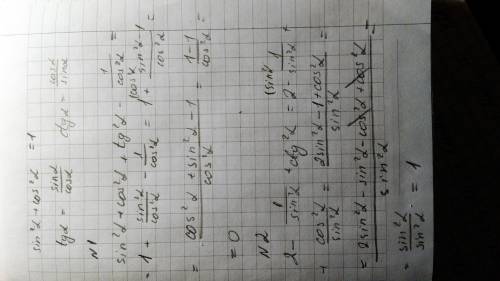 sin²α + cos²α = 1
tgα = sinα/cosα   ctgα = cosα/sinα
N1
sin²α + cos²α + tg²α - 1/cos²α =
= 1 + sin²α/cos²α - 1/cos²α = 1 + (sin²α - 1)/cos²α =
= (cos²α + sin²α - 1)/cos²α = (1 - 1)/cos²α =
= 0
N2
2 - 1/sin²α + ctg²α = 2 - 1/sin²α +
+ cos²α/sin²α = (2sin²α - 1 + cos²α)/sin²α =
= (2sin²α - sin²α - cos²α + cos²α)/sin²α =
= sin²α/sin²α = 1